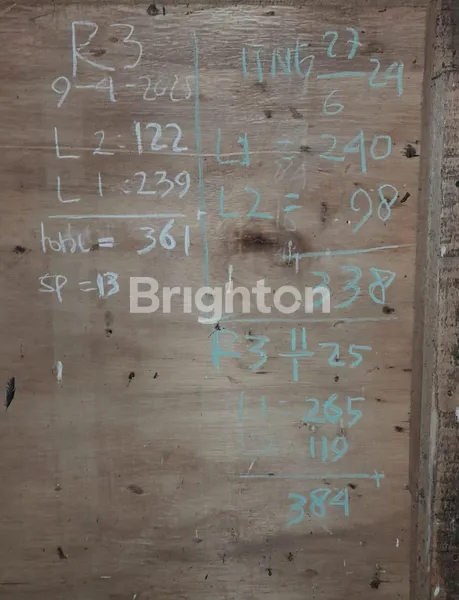 R3
9-4-2025
L2:122
L1:239
total = 361
SP = 13
27
6 24
L1 = 240
L2 = 98
+
338
R3 11/1 25
L1 265
119
+
384
Brighton